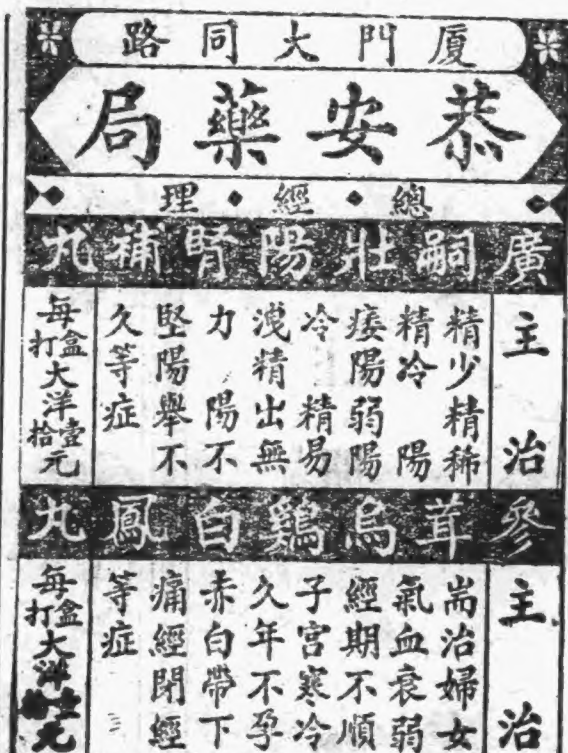 廈門大同路
恭安藥局
總經理
廣嗣壯陽腎補丸
主治
精少精稀
精冷 陽
痿陽弱陽
冷 精易
洩精出無
力 陽不
堅陽舉不
久等症
每盒大洋壹元
打拾
參茸烏鷄白鳳丸
主治
耑治婦女
氣血衰弱
經期不順
子宮寒冷
久年不孕
赤白帶下
痛經閉經
等症
每盒大洋
打
元